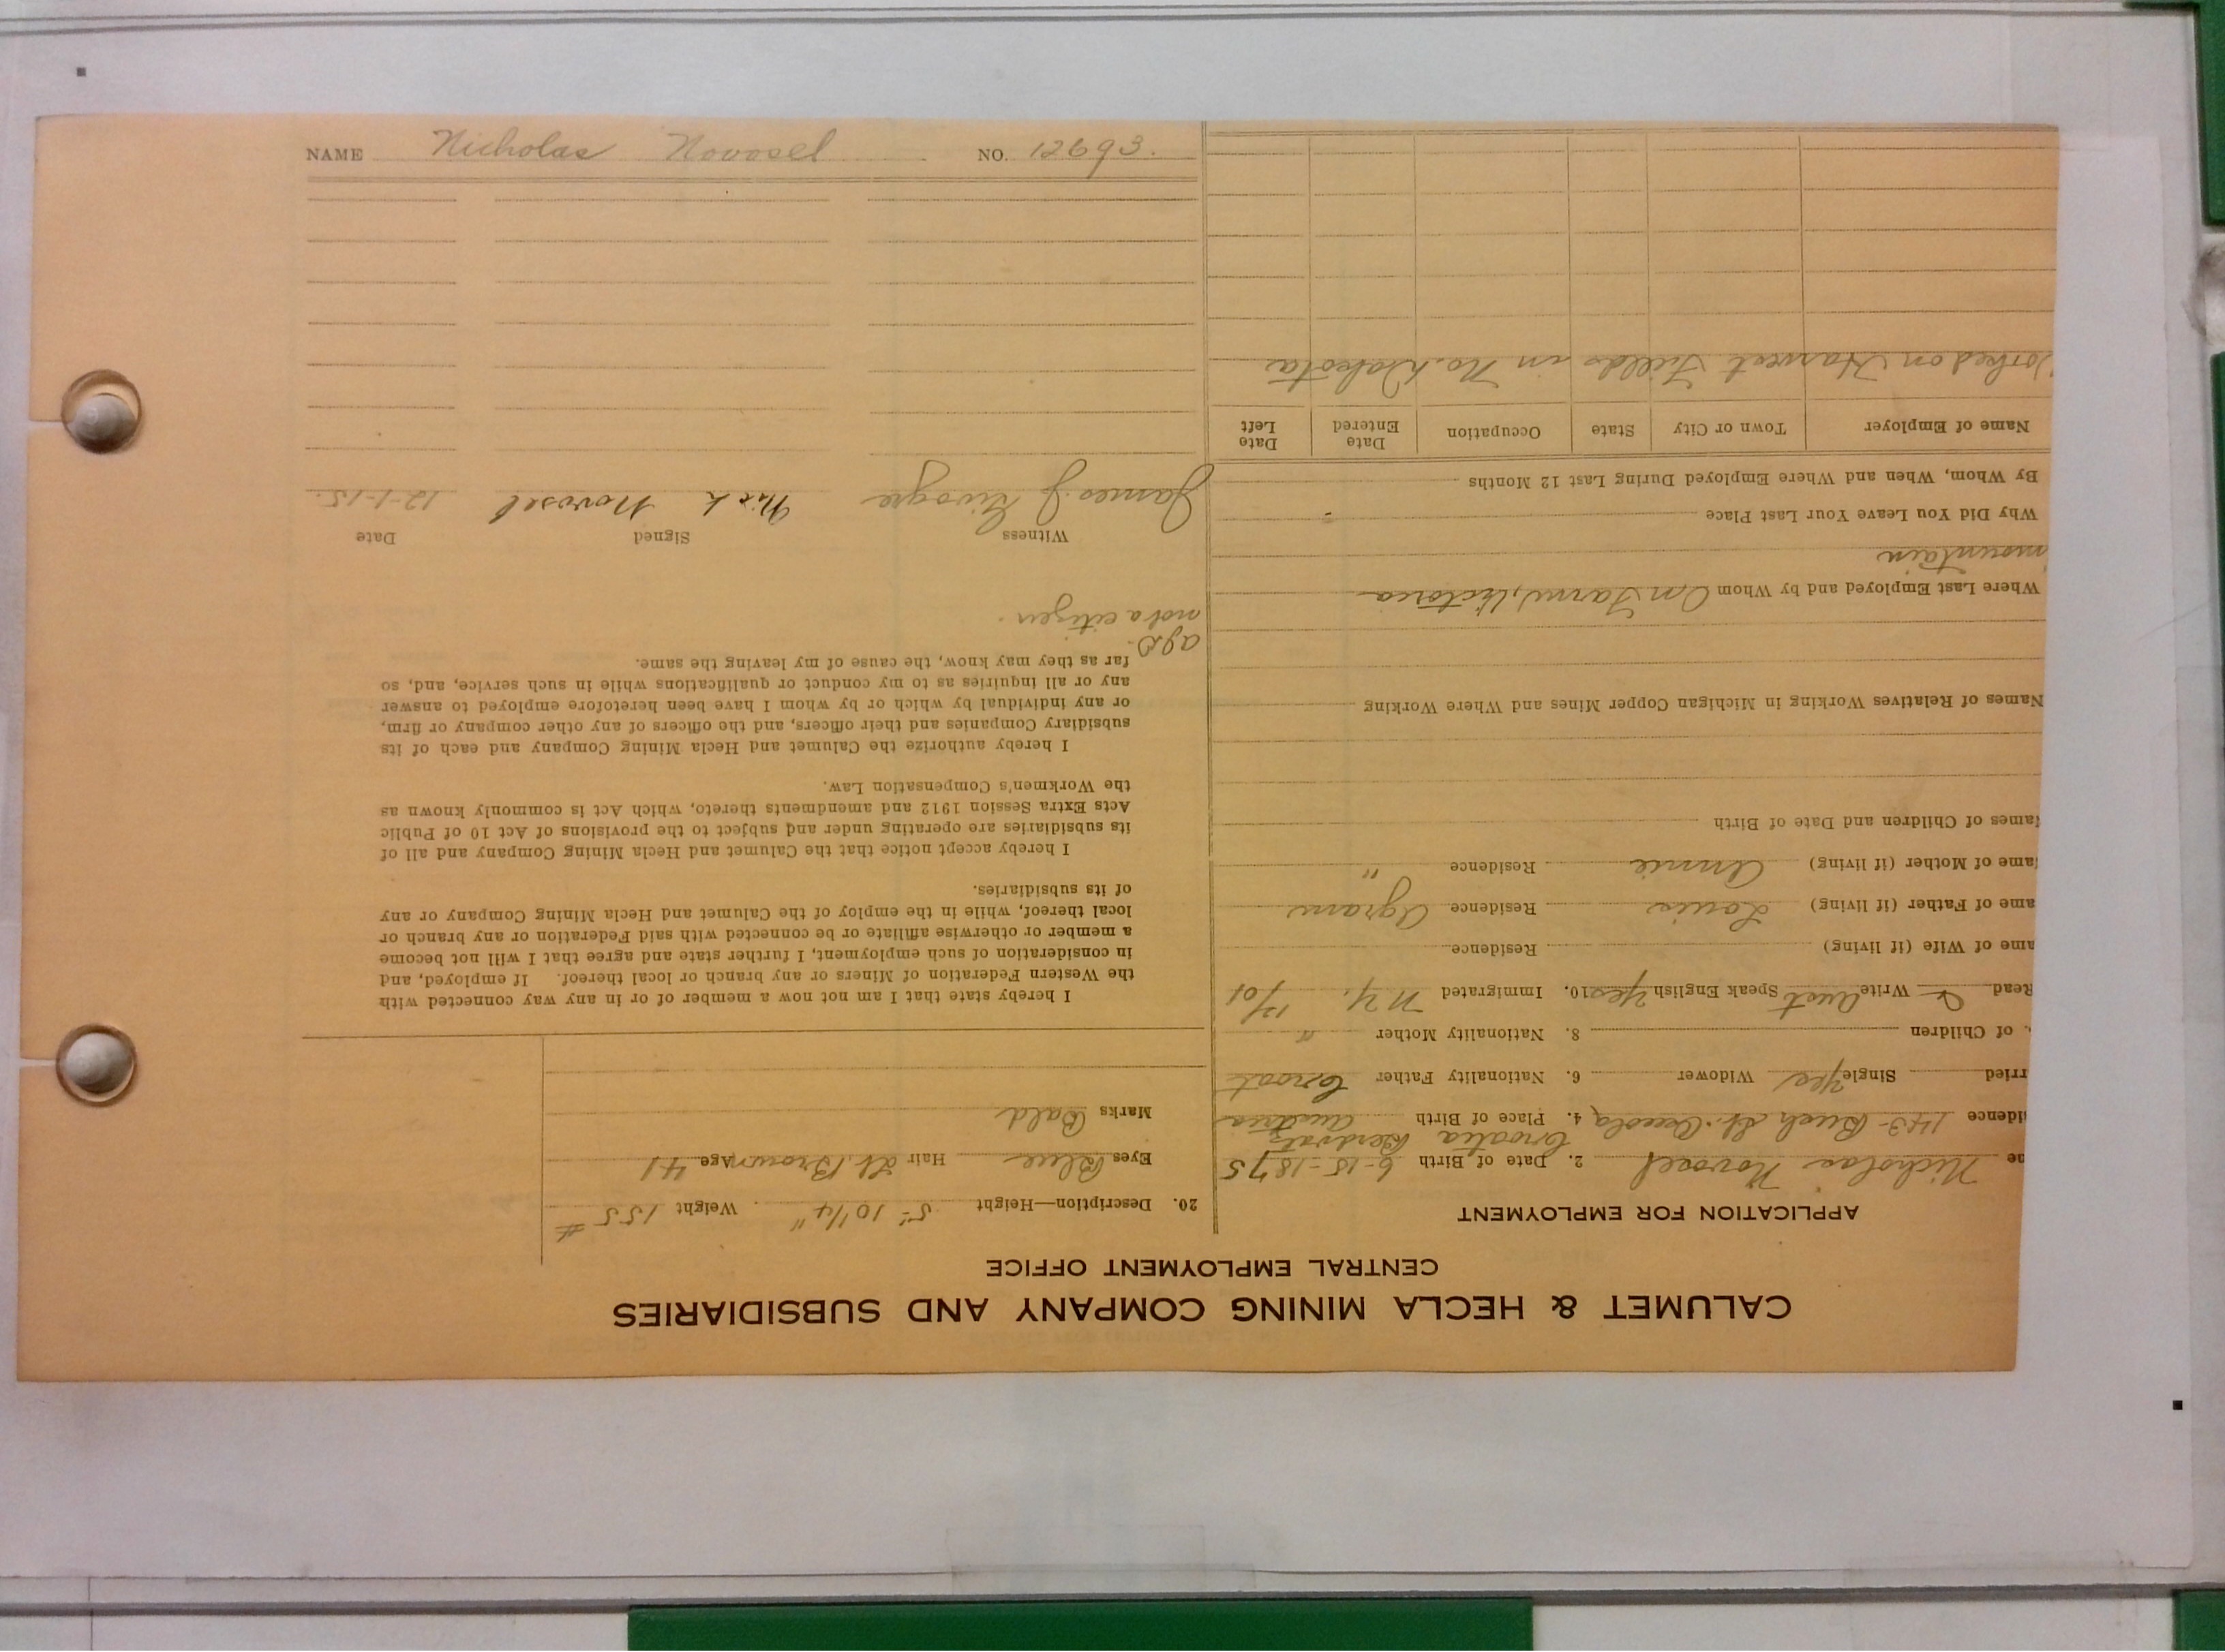 NAME Nicholas Novosel NO. 12693.
CALUMET & HECLA MINING COMPANY AND SUBSIDIARIES
CENTRAL EMPLOYMENT OFFICE
APPLICATION FOR EMPLOYMENT
me Nicholas Novosel 2. Date of Birth 6-15-1875
Croatia
idence 143- Bush St. Osceola 4. Place of Birth Austria
rried Single Yes Widower 6. Nationality Father Croat
. of Children 8. Nationality Mother "
Read & Write Aust Speak English Yes 10. Immigrated N.Y. 12/01
ame of Wife (if living) Residence
ame of Father (if living) Louis Residence Agram
ame of Mother (if living) Annie Residence "
ames of Children and Date of Birth
Names of Relatives Working in Michigan Copper Mines and Where Working
Where Last Employed and by Whom On Farm, Victoria
mountain
Why Did You Leave Your Last Place -
By Whom, When and Where Employed During Last 12 Months
Name of Employer Town or City State Occupation Date Entered Date Left
Worked on Harvest Fields in No. Dakota
20. Description—Height 5'- 10 1/4" Weight 155 #
Eyes Blue Hair Lt. Brown Age 41
Marks Bald
I hereby state that I am not now a member of or in any way connected with
the Western Federation of Miners or any branch or local thereof. If employed, and
in consideration of such employment, I further state and agree that I will not become
a member or otherwise affiliate or be connected with said Federation or any branch or
local thereof, while in the employ of the Calumet and Hecla Mining Company or any
of its subsidiaries.
I hereby accept notice that the Calumet and Hecla Mining Company and all of
its subsidiaries are operating under and subject to the provisions of Act 10 of Public
Acts Extra Session 1912 and amendments thereto, which Act is commonly known as
the Workmen's Compensation Law.
I hereby authorize the Calumet and Hecla Mining Company and each of its
subsidiary Companies and their officers, and the officers of any other company or firm,
or any individual by which or by whom I have been heretofore employed to answer
any or all inquiries as to my conduct or qualifications while in such service, and, so
far as they may know, the cause of my leaving the same.
not a citizen.
Witness Signed Date
James J. Nick Novosel 12-1-15.